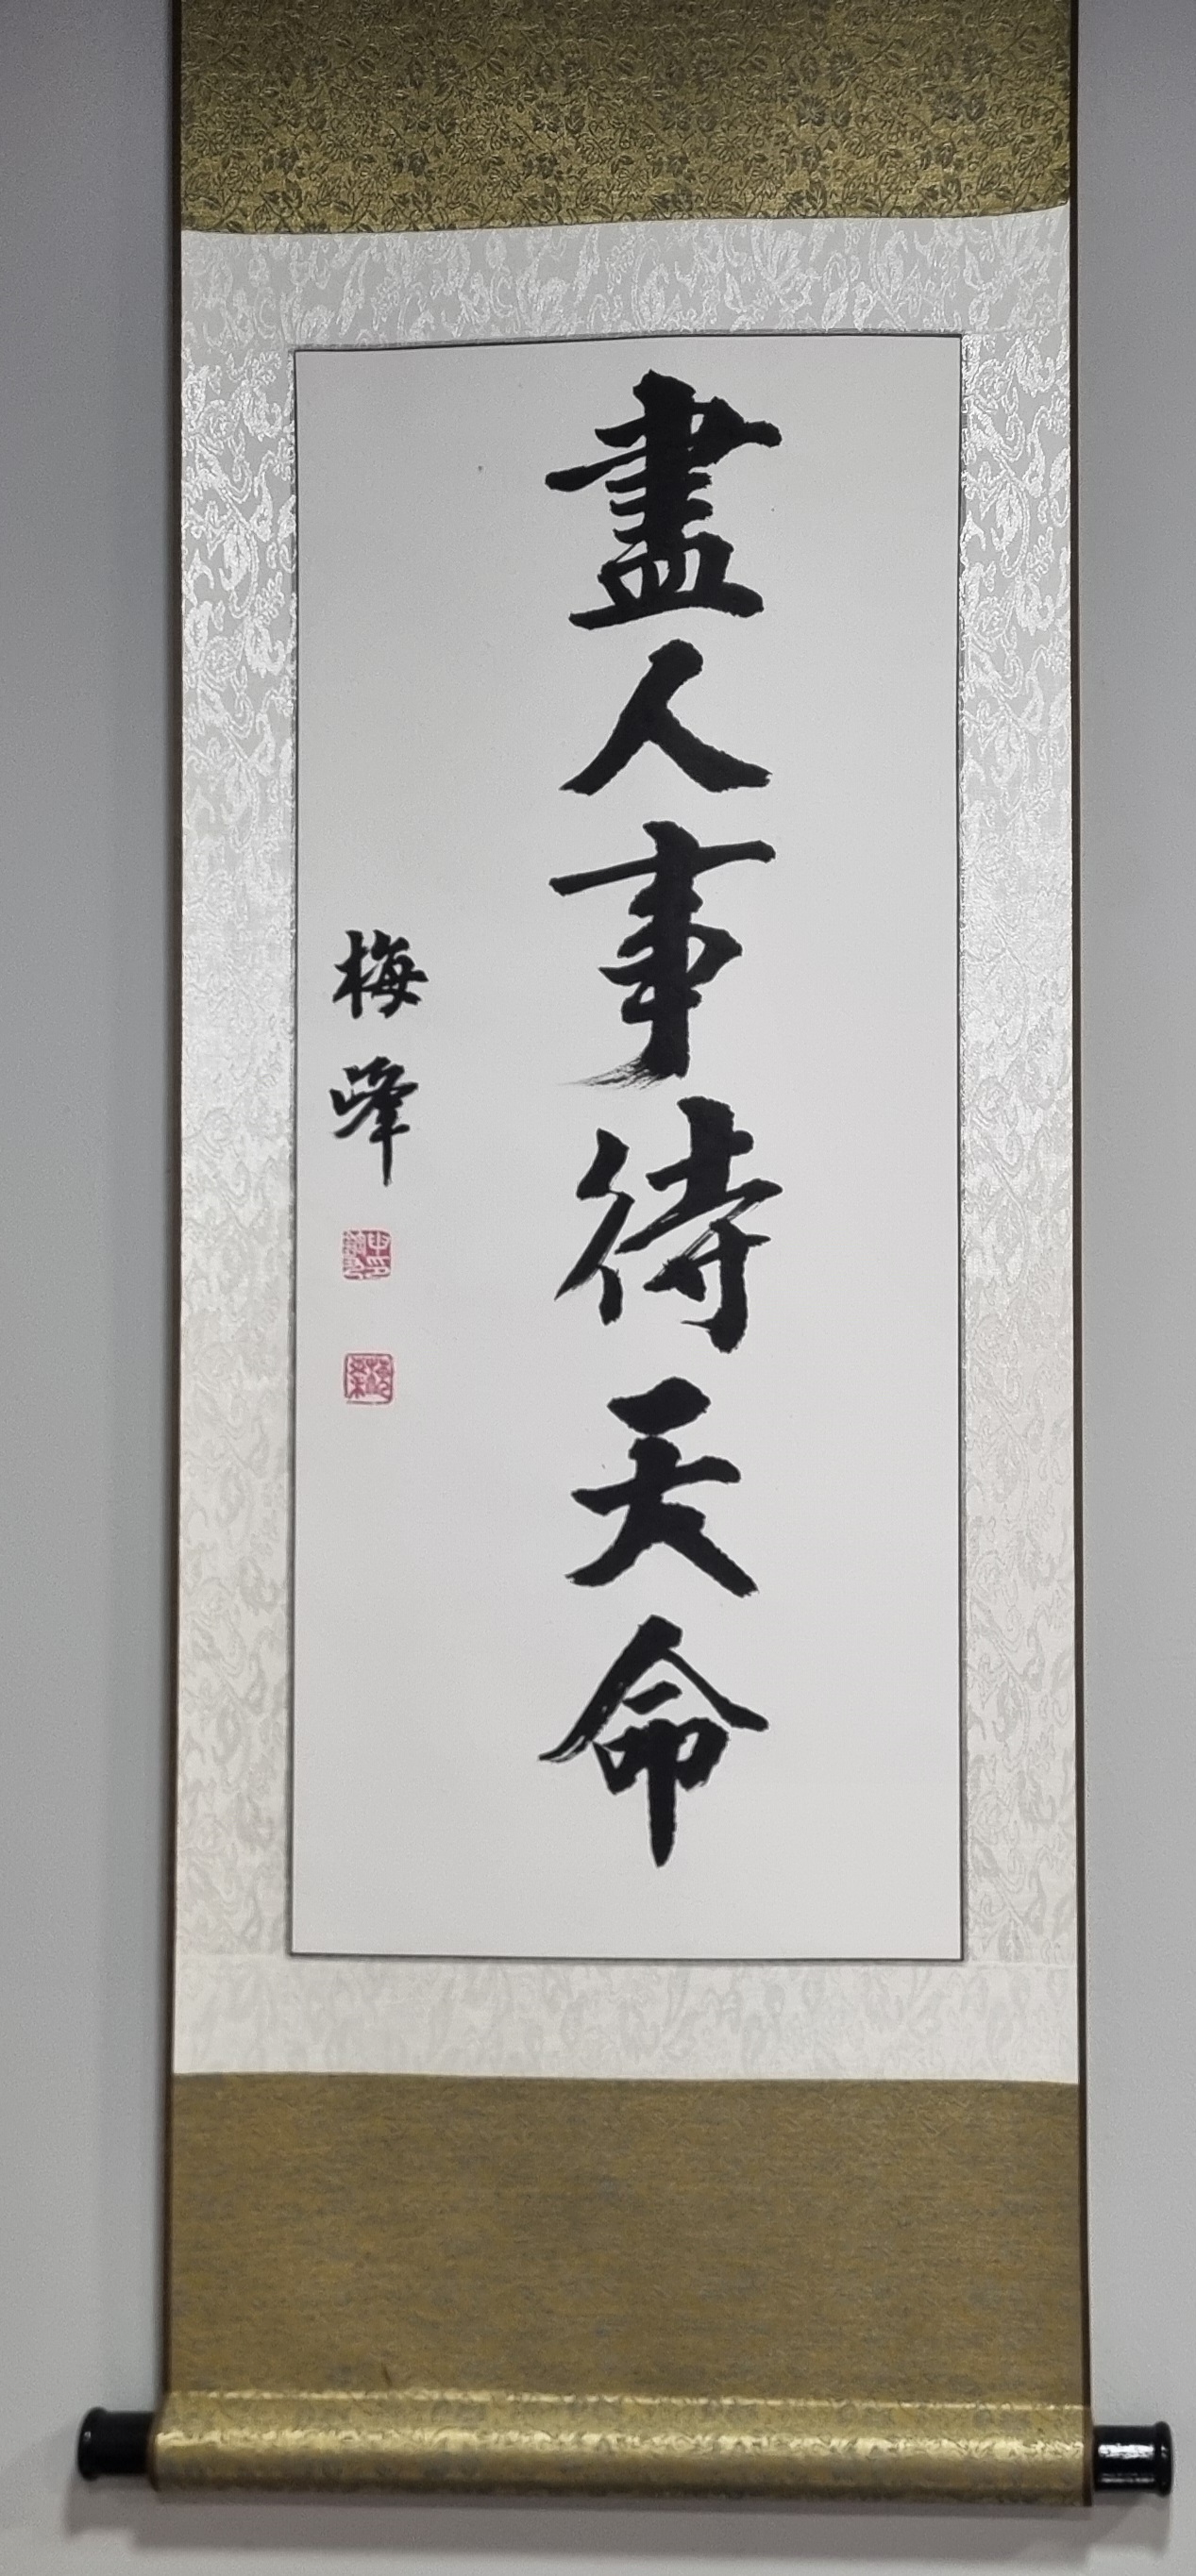 盡人事待天命
梅峰